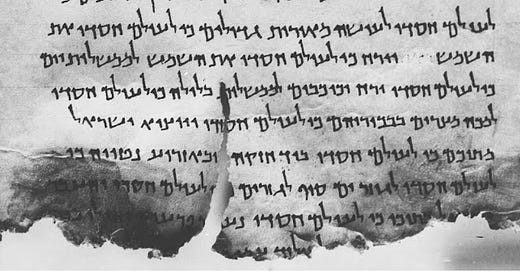 לעולם חסדו לעושה מאורות גדולים כי לעולם חסדו את
השמש וירח כי לעולם חסדו את השמש לממשלות יום
כי לעולם חסדו ירח וכוכבים לממשלות בלילה כי לעולם חסדו
למכה מצרים בבכוריהם כי לעולם חסדו ויוציא ישראל
מתוכם כי לעולם חסדו ביד חזקה ובאזרוע נטויה כי
לעולם חסדו לגוזר ים סוף לגזרים לעולם חסדו
בתוכו כי לעולם חסדו